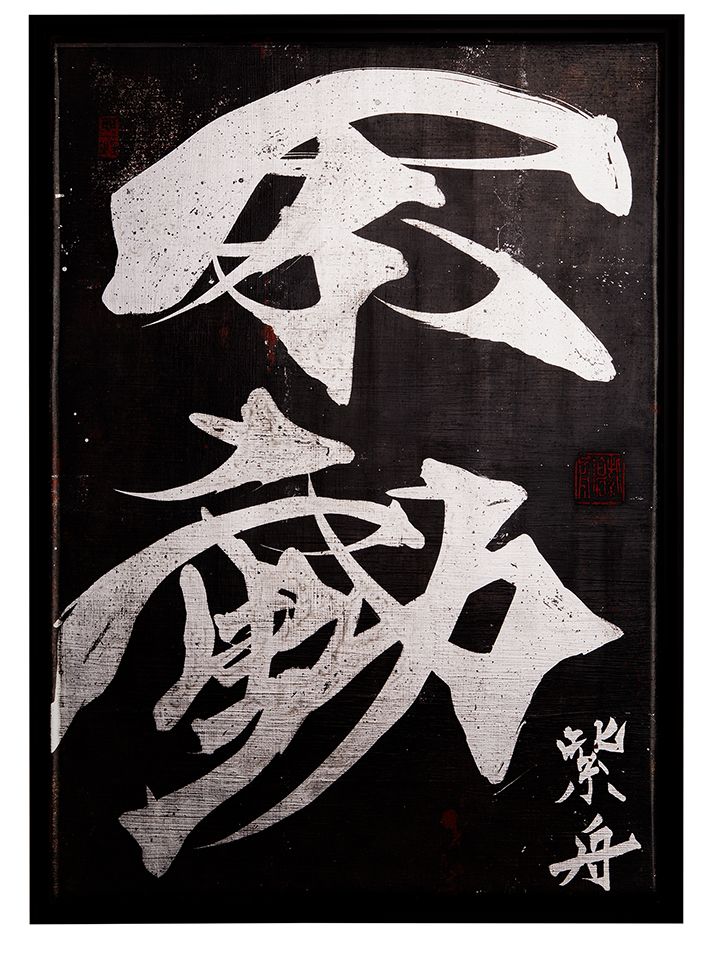 不動
紫舟